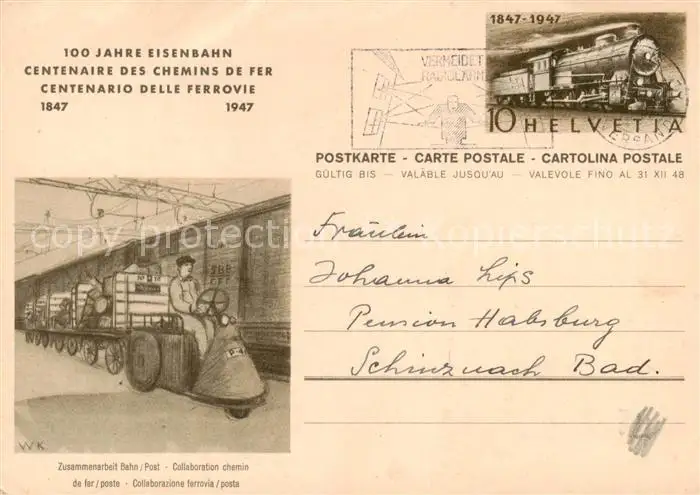 100 JAHRE EISENBAHN
CENTENAIRE DES CHEMINS DE FER
CENTENARIO DELLE FERROVIE
1847 1947
VERMEIDET
RADIOLÄRM
1847-1947
10 HELVETIA
POSTKARTE - CARTE POSTALE - CARTOLINA POSTALE
GÜLTIG BIS — VALABLE JUSQU'AU — VALEVOLE FINO AL 31 XII 48
copy protection Kopierschutz
Fräulein
Johanna Lips
Pension Habsburg
Schinznach Bad.
SBB
CFF
P-4
WK
Zusammenarbeit Bahn/Post · Collaboration chemin
de fer/poste · Collaborazione ferrovia/posta